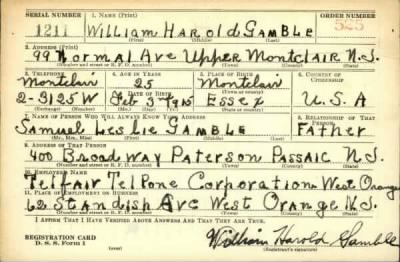 SERIAL NUMBER 1. NAME (Print) ORDER NUMBER
1211 William Harold Gamble 525
(First) (Middle) (Last)
2. ADDRESS (Print)
99 Normal Ave Upper Montclair N.J.
(Number and street or R. F. D. number) (Town) (County) (State)
3. TELEPHONE 4. AGE IN YEARS 5. PLACE OF BIRTH 6. COUNTRY OF CITIZENSHIP
Montclair 25 Montclair
DATE OF BIRTH (Town or county)
2-3125W Feb 3 1915 Essex U.S.A
7. NAME OF PERSON WHO WILL ALWAYS KNOW YOUR ADDRESS 8. RELATIONSHIP OF THAT PERSON
Samuel Leslie Gamble Father
(Mr., Mrs., Miss) (First) (Middle) (Last)
9. ADDRESS OF THAT PERSON
400 Broadway Paterson Passaic N.J.
(Number and street or R. F. D. number) (Town) (County) (State)
10. EMPLOYER'S NAME
Corporation West Orange
11. PLACE OF EMPLOYMENT OR BUSINESS
62 Standish Ave West Orange N.J.
(Number and street or R. F. D. number) (Town) (County) (State)
I AFFIRM THAT I HAVE VERIFIED ABOVE ANSWERS AND THAT THEY ARE TRUE.
REGISTRATION CARD
D. S. S. Form 1
William Harold Gamble
(Registrant's signature)